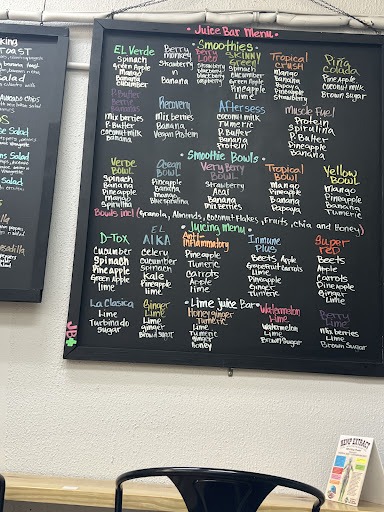 king
TOAST
Salad
Avocado Chips
e Salad
ns Salad
Salad
lla
esadilla
• Juice Bar Menu •
• Smoothies •
EL Verde
Spinach
Green Apple
Mango
Banana
Cucumber
Berry
Monkey
Strawberry
n
Banana
Berry
Loco
Strawberry
blackberry
blueberry
raspberry
SKINNY
Green
Spinach
Cucumber
Green Apple
Pineapple
Lime
Tropical
Crush
Mango
Banana
Pineapple
Papaya
Strawberry
Pina
Colada
Pineapple
Coconut Milk
Brown Sugar
P. Butter
Berrie
Banana
Mix berries
P. Butter
Banana
coconut milk
Recovery
Mix berries
Banana
Vegan Protein
Aftersess
coconut milk
Tumeric
P. Butter
Protein
Banana
Muscle Fuel
Protein
spirulina
P. Butter
Pineapple
Banana
• Smoothie Bowls •
Verde
BOWL
Spinach
Banana
Pineapple
Mango
Spirulina
Ocean
BOWL
Pineapple
Banana
Mango
Bluespirulina
Very Berry
BOWL
Strawberry
Acai
Banana
Mix berries
Tropical
BOWL
Mango
Pineapple
Banana
Papaya
Yellow
BOWL
Mango
Pineapple
Banana
Tumeric
Bowls incl (Granola, Almonds, Coconut flakes, Fruits, chia, and Honey)
• Juicing menu •
D-Tox
Cucumber
Spinach
Pineapple
Green Apple
lime
EL
AIKA
Celery
Cucumber
Spinach
Kale
Pineapple
lime
Anti-
inflammatory
Pineapple
Tumeric
Carrots
Apple
Lime
Inmune
Plus
Beets Apple
Grapefruit Carrots
Lime
Pineapple
Ginger
Tumeric
Super
red
Beets
Apple
Carrots
Pineapple
Ginger
Lime
• Lime Juice Bar •
La Clasica
Lime
Turbinado
Sugar
Ginger
Lime
Lime
ginger
Brown Sugar
Honey ginger
Tumeric
Lime
Tumeric
Ginger
honey
Watermelon
Lime
Watermelon
Lime
Brown Sugar
Berry
Lime
Mix berries
Lime
Brown Sugar
JB+
HEMP EXTRACT